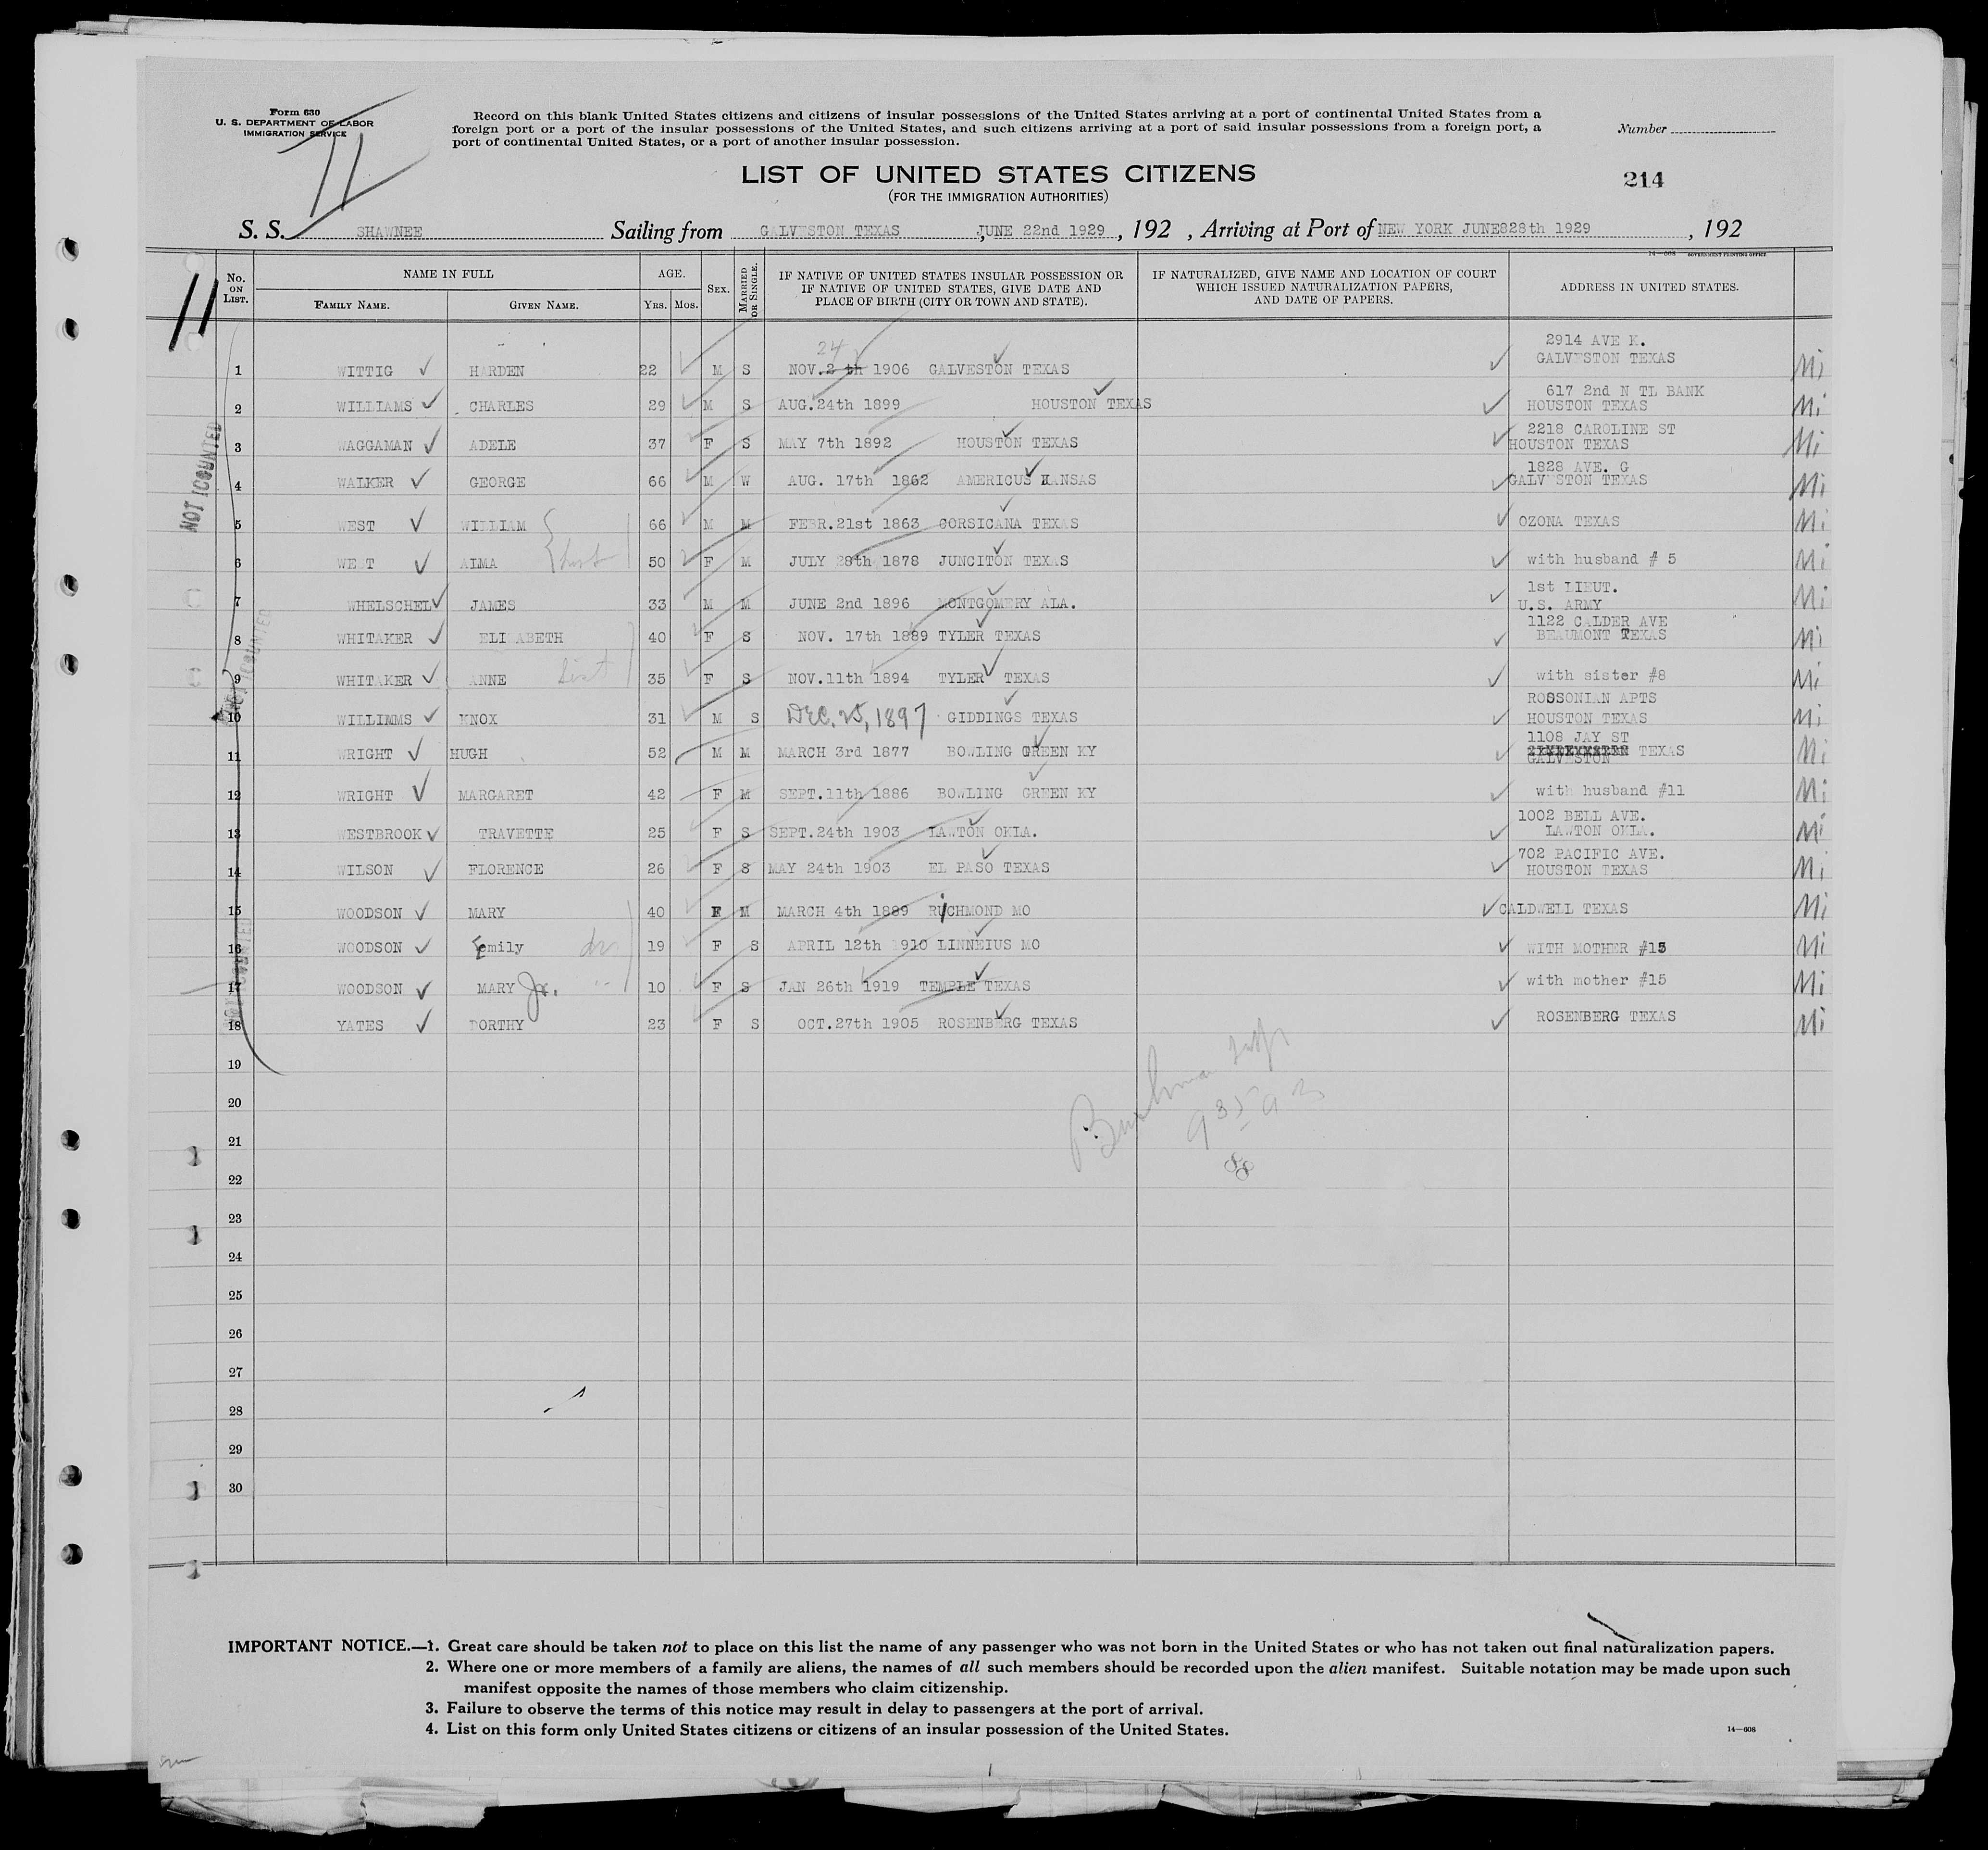 Form 630
U. S. DEPARTMENT OF LABOR
IMMIGRATION SERVICE
Record on this blank United States citizens and citizens of insular possessions of the United States arriving at a port of continental United States from a
foreign port or a port of the insular possessions of the United States, and such citizens arriving at a port of said insular possessions from a foreign port, a
port of continental United States, or a port of another insular possession.
Number
LIST OF UNITED STATES CITIZENS
(FOR THE IMMIGRATION AUTHORITIES)
214
S. S. SHAWNEE Sailing from GALVESTON TEXAS JUNE 22nd 1929, 192 , Arriving at Port of NEW YORK JUNE828th 1929, 192
14—608 GOVERNMENT PRINTING OFFICE
11
No. ON LIST. NAME IN FULL FAMILY NAME. GIVEN NAME. AGE. YRS. MOS. SEX. MARRIED OR SINGLE. IF NATIVE OF UNITED STATES INSULAR POSSESSION OR IF NATIVE OF UNITED STATES, GIVE DATE AND PLACE OF BIRTH (CITY OR TOWN AND STATE). IF NATURALIZED, GIVE NAME AND LOCATION OF COURT WHICH ISSUED NATURALIZATION PAPERS, AND DATE OF PAPERS. ADDRESS IN UNITED STATES.
1 WITTIG HARDEN 22 M S NOV. 24 1906 GALVESTON TEXAS 2914 AVE K. GALVESTON TEXAS
2 WILLIAMS CHARLES 29 M S AUG.24th 1899 HOUSTON TEXAS 617 2nd N TL BANK HOUSTON TEXAS
3 WAGGAMAN ADELE 37 F S MAY 7th 1892 HOUSTON TEXAS 2218 CAROLINE ST HOUSTON TEXAS
4 WALKER GEORGE 66 M W AUG. 17th 1862 AMERICUS KANSAS 1828 AVE. G GALVESTON TEXAS
5 WEST WILLIAM 66 M M FEBR.21st 1863 CORSICANA TEXAS OZONA TEXAS
6 WEST ALMA 50 F M JULY 28th 1878 JUNCITON TEXAS with husband # 5
7 WHELSCHEL JAMES 33 M M JUNE 2nd 1896 MONTGOMERY ALA. 1st LIEUT. U.S. ARMY
8 WHITAKER ELIZABETH 40 F S NOV. 17th 1889 TYLER TEXAS 1122 CALDER AVE BEAUMONT TEXAS
9 WHITAKER ANNE 35 F S NOV.11th 1894 TYLER TEXAS with sister #8
10 WILLIMMS KNOX 31 M S DEC. 25, 1897 GIDDINGS TEXAS ROSSONIAN APTS HOUSTON TEXAS
11 WRIGHT HUGH 52 M M MARCH 3rd 1877 BOWLING GREEN KY 1108 JAY ST TEXAS GALVESTON
12 WRIGHT MARGARET 42 F M SEPT.11th 1886 BOWLING GREEN KY with husband #11
13 WESTBROOK TRAVETTE 25 F S SEPT.24th 1903 LAWTON OKLA. 1002 BELL AVE. LAWTON OKLA.
14 WILSON FLORENCE 26 F S MAY 24th 1903 EL PASO TEXAS 702 PACIFIC AVE. HOUSTON TEXAS
15 WOODSON MARY 40 F M MARCH 4th 1889 RICHMOND MO CALDWELL TEXAS
16 WOODSON Emily 19 F S APRIL 12th 1910 LINNEIUS MO WITH MOTHER #15
17 WOODSON MARY Jr. 10 F S JAN 26th 1919 TEMPLE TEXAS with mother #15
18 YATES DORTHY 23 F S OCT.27th 1905 ROSENBERG TEXAS ROSENBERG TEXAS
19
20
21
22
23
24
25
26
27
28
29
30
IMPORTANT NOTICE.—1. Great care should be taken not to place on this list the name of any passenger who was not born in the United States or who has not taken out final naturalization papers.
2. Where one or more members of a family are aliens, the names of all such members should be recorded upon the alien manifest. Suitable notation may be made upon such
manifest opposite the names of those members who claim citizenship.
3. Failure to observe the terms of this notice may result in delay to passengers at the port of arrival.
4. List on this form only United States citizens or citizens of an insular possession of the United States.
14—608